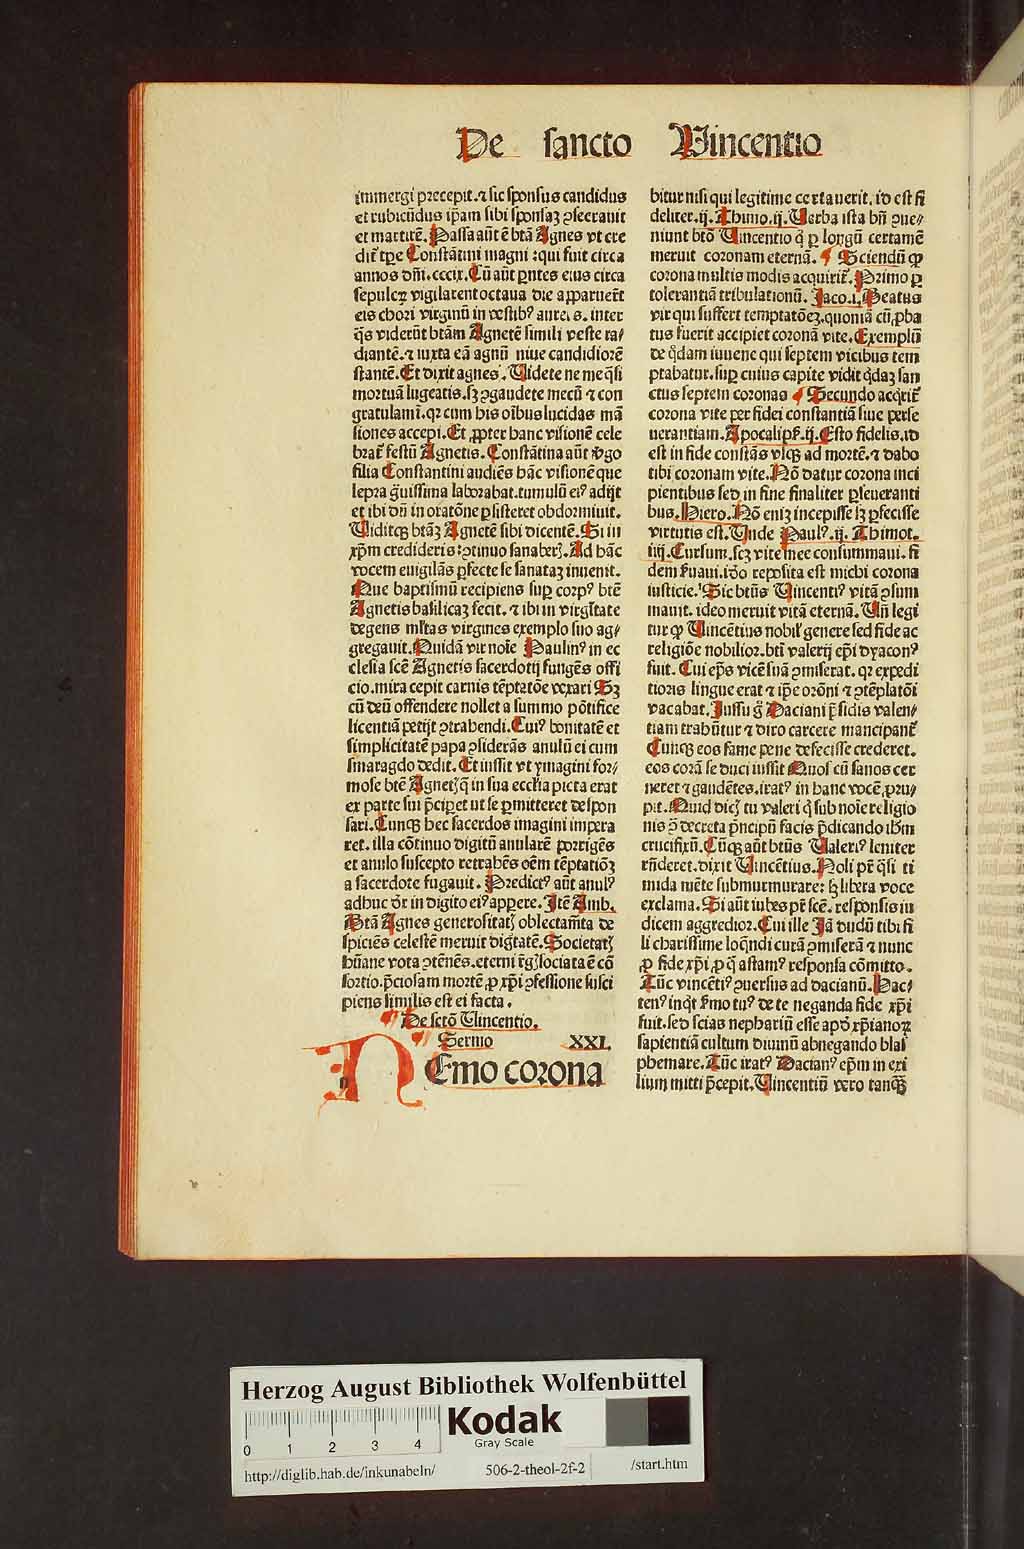 De sancto Vincentio
immergi precepit. ⁊ sic sponsus candidus
et rubicūdus ip̄am sibi sponsaꝫ ꝯsecrauit
et martirē. Passa aūt ē btā Agnes vt cre
dit᷑ tp̄e Constātini magni : qui fuit circa
annos dn̄i. cccix. Cū aūt pñtes eius circa
sepulcꝝ vigilarent octaua die apparuer̄t
eis chori virginū in vestibꝰ aureis. inter
q̄s viderūt btām Agnetē simili veste ra/
diantē. ⁊ iuxta eā agnū niue candidiorē
stantē. Et dixit agnes. Videte ne me q̄si
mortuā lugeatis. sꝫ ꝯgaudete mecū ⁊ con
gratulami. qꝛ cum his oībus lucidas mā
siones accepi. Et ꝓpter hanc visionē cele
brat᷑ festū Agnetis. Constātina aūt ỽgo
filia Constantini audiēs hāc visionē que
lepra g̃uissima laborabat. tumulū eiꝰ adijt
et ibi dū in oratōne ꝑsisteret obdormiuit.
Viditqꝫ btāꝫ Agnetē sibi dicentē. Si in
xp̄m credideris : ꝯtinuo sanaberꝭ. Ad hāc
vocem euigilās ꝑfecte se sanataꝫ inuenit.
Que baptismū recipiens suꝑ corpꝰ btē
Agnetis basilicaꝫ fecit. ⁊ ibi in virgītate
degens ml̄tas virgines exemplo suo ag/
gregauit. Quidā vir noīe Paulinꝰ in ec
clesia scē Agnetis sacerdotij fungēs offi
cio. mira cepit carnis tēptatōe vexari Sꝫ
cū deū offendere nollet a summo pōtifice
licentiā petijt ꝯtrahendi. Cuiꝰ bonitatē et
simplicitatē papa ꝯsiderās anulū ei cum
smaragdo dedit. Et iussit vt ymagini for/
mose btē Agnetꝭ q̄ in sua ecclia picta erat
ex parte sui p̄cipet ut se ꝑmitteret despon
sari. Cunqꝫ hec sacerdos imagini impera
ret. illa cōtinuo digitū annularē porrigēs
et anulo suscepto retrahēs oēm tēptatiōꝫ
a sacerdote fugauit. Predictꝰ aūt anulꝰ
adhuc dr̄ in digito eiꝰ apꝑere. Itē Amb.
Btā Agnes generositatꝭ oblectam̄ta de
spiciēs celestē meruit dig̃tatē. Societatꝭ
hūane vota ꝯtēnēs. eterni r̄gꝭ sociata ē cō
sortio. p̄ciosam mortē ꝓ xp̄i ꝯfessione susci
piens similis est ei facta.
De sctō Vincentio.
Sermo XXI.
n Emo corona
bitur nisi qui legitime certauerit. id est fi
deliter. ij. Thimo. ij. Verba ista bn̄ ꝯue/
niunt btō Vincentio q̄ ꝑ longū certamē
meruit coronam eternā. Sciendū ꝙ
corona multis modis acquirit᷑. Primo ꝑ
tolerantiā tribulationū. Jaco. i. Beatus
vir qui suffert temptatōeꝫ. quoniā cū ꝓba
tus fuerit accipiet coronā vite. Exemplū
de q̄dam iuuene qui septem vicibus tem
ptabatur. suꝑ cuius capite vidit q̄daꝫ san
ctus septem coronas Secundo acq̄rit᷑
corona vite per fidei constantiā siue perse
uerantiam. Apocalipẜ. ij. Esto fidelis. id
est in fide constās vsqꝫ ad mortē. ⁊ dabo
tibi coronam vite. Nō datur corona inci
pientibus sed in fine finaliter ꝑseueranti
bus. Hiero. Nō eniꝫ incepisse sꝫ ꝑfecisse
virtutis est. Vnde Paulꝰ. ij. Thimot.
iiij. Cursum. scꝫ vite mee consummaui. fi
dem ẜuaui. iđo reposita est michi corona
iusticie. Sic btūs Vincentiꝰ vitā ꝯsum
mauit. ideo meruit vitā eternā. Vn̄ legi
tur ꝙ Vincētius nobilꝭ genere sed fide ac
religiōe nobilior. bti̇̄ valerij ep̄i dyaconꝰ
fuit. Cui ep̄s vicē suā ꝯmiserat. qꝛ expedi
tioris lingue erat ⁊ ip̄e orōni ⁊ ꝯtēplatōi
vacabat. Jussu g̊ Daciani p̄sidis valen/
tiam trahūtur ⁊ diro carcere mancipant᷑
Cunqꝫ eos fame pene defecisse crederet.
eos corā se duci iussit Quos cū sanos cer
neret ⁊ gaudētes. iratꝰ in hanc vocē ꝓru/
pit. Quid dicꝭ tu valeri q̄ sub noīe religio
nis ꝯ̄ decreta p̄ncipū facis p̄dicando ih̄m
crucifixū. Cūqꝫ aūt btūs Valeriꝰ leniter
rn̄deret. dixit Vincētius. Noli pr̄ q̄si ti
mida mēte submurmurare : sꝫ libera voce
exclama. Si aūt iubes pr̄ scē. responsis iu
dicem aggredior. Cui ille Jā dudū tibi fi
li charissime loq̄ndi curā ꝯmiserā ⁊ nunc
ꝓ fide xp̄i ꝓ q̄ astamꝰ responsa cōmitto.
Tūc vincētiꝰ ꝯuersus ad dacianū. Hac/
tenꝰ inq̄t ẜmo tuꝰ de te neganda fide xp̄i
fuit. sed scias nephariū esse apd̄ xp̄ianoꝝ
sapientiā cultum diuinū abnegando blas
phemare. Tūc iratꝰ Dacianꝰ ep̄m in exi
lium mitti p̄cepit. Vincentiū vero tanqꝫ
Herzog August Bibliothek Wolfenbüttel
0 1 2 3 4
Kodak
Gray Scale
http://diglib.hab.de/inkunabeln/ 506-2-theol-2f-2 /start.htm